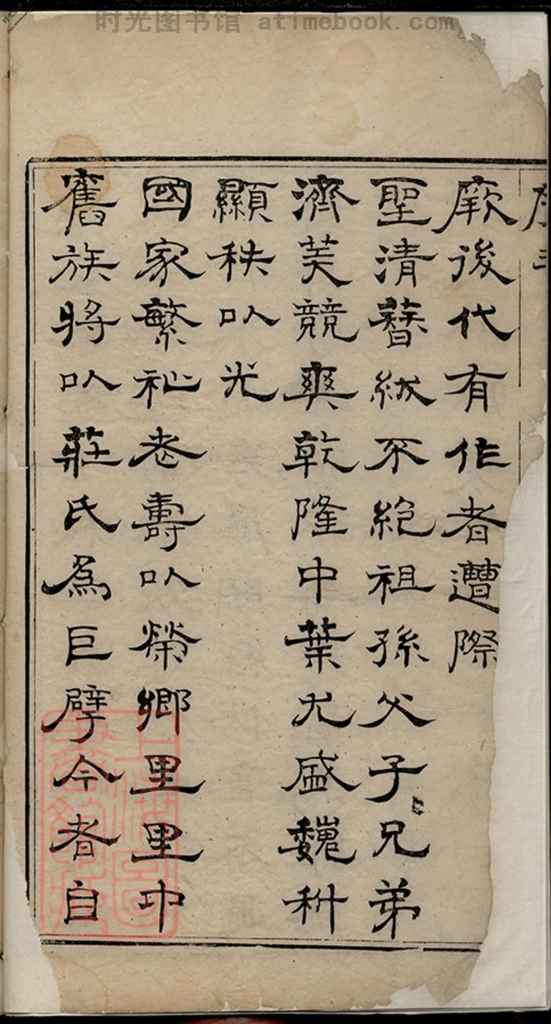 时光图书馆 atimebook.com
厥後代有作者遭際
聖清簪紱不絕祖孫父子兄弟
濟美競爽乾隆中葉尤盛巍科
顯秩以光
國家繁祉老壽以榮鄉里里中
舊族將以莊氏為巨擘今者自